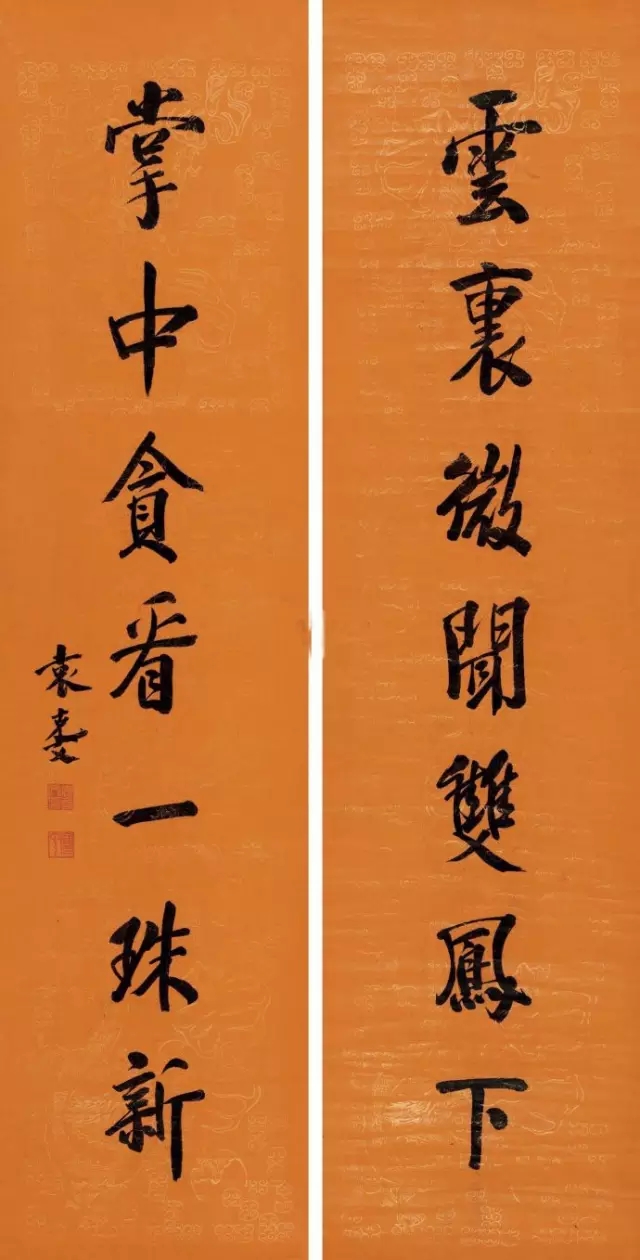 雲裏微聞雙鳳下
掌中貪看一珠新
袁克文